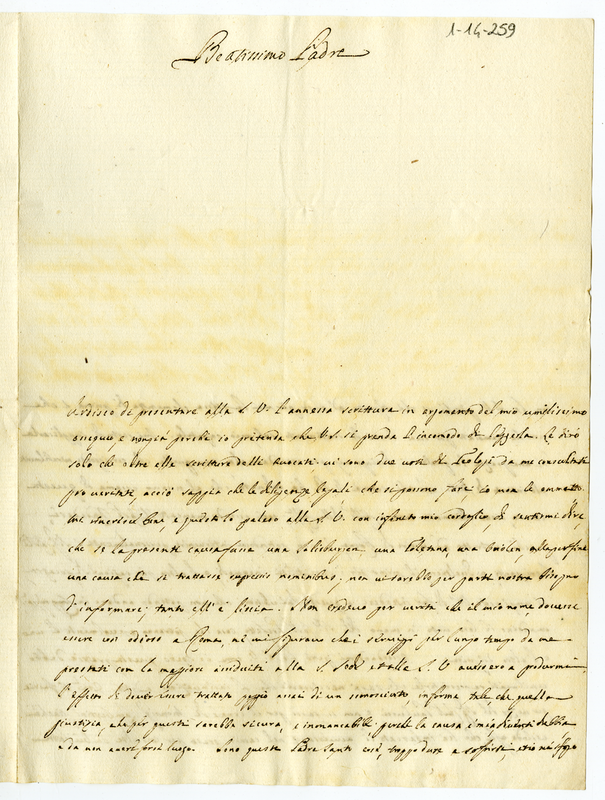 1-14-259
Beatissimo Padre
Ardisco di presentare alla S. V. l'annessa scrittura in argomento del mio umilissimo
ossequio, e non già perche io pretenda che V. S. si prenda l'incomodo di leggerla. Le dirò
solo che oltre alle scritture delli Avocati vi sono due voti di Teologi da me consultati
pro veritate, acciò sappia che le diligenze legali che si possono fare io non le ommetto.
Mi rincresce bene, e questo lo paleso alla S. V. con infinito mio cordoglio, di sentirmi dire
che se la presente causa fusse una Salisburgen una Toletana, una
una causa che si trattasse supressis nominibus, non vi sarebbe per parte nostra bisogno
d'informare; tanto ell' è liscia. Non credevo per verità che il mio nome dovesse
essere così odioso a Roma, né mi figuravo che i servizj per lungo tempo da me
prestati con la maggiore assiduità alla S. Sede et alle S. V. avessero a produrmi
l'effetto di dover essere trattato peggio assai di un sconosciuto, in forma tale, che quella
giustizia, che per questi sarebbe sicura, e immancabile, perche la causa è mia diventi dubbia
e da non avere forsi luogo. Sono queste Padre Santo cose troppo dure a soffrirsi, et io mi